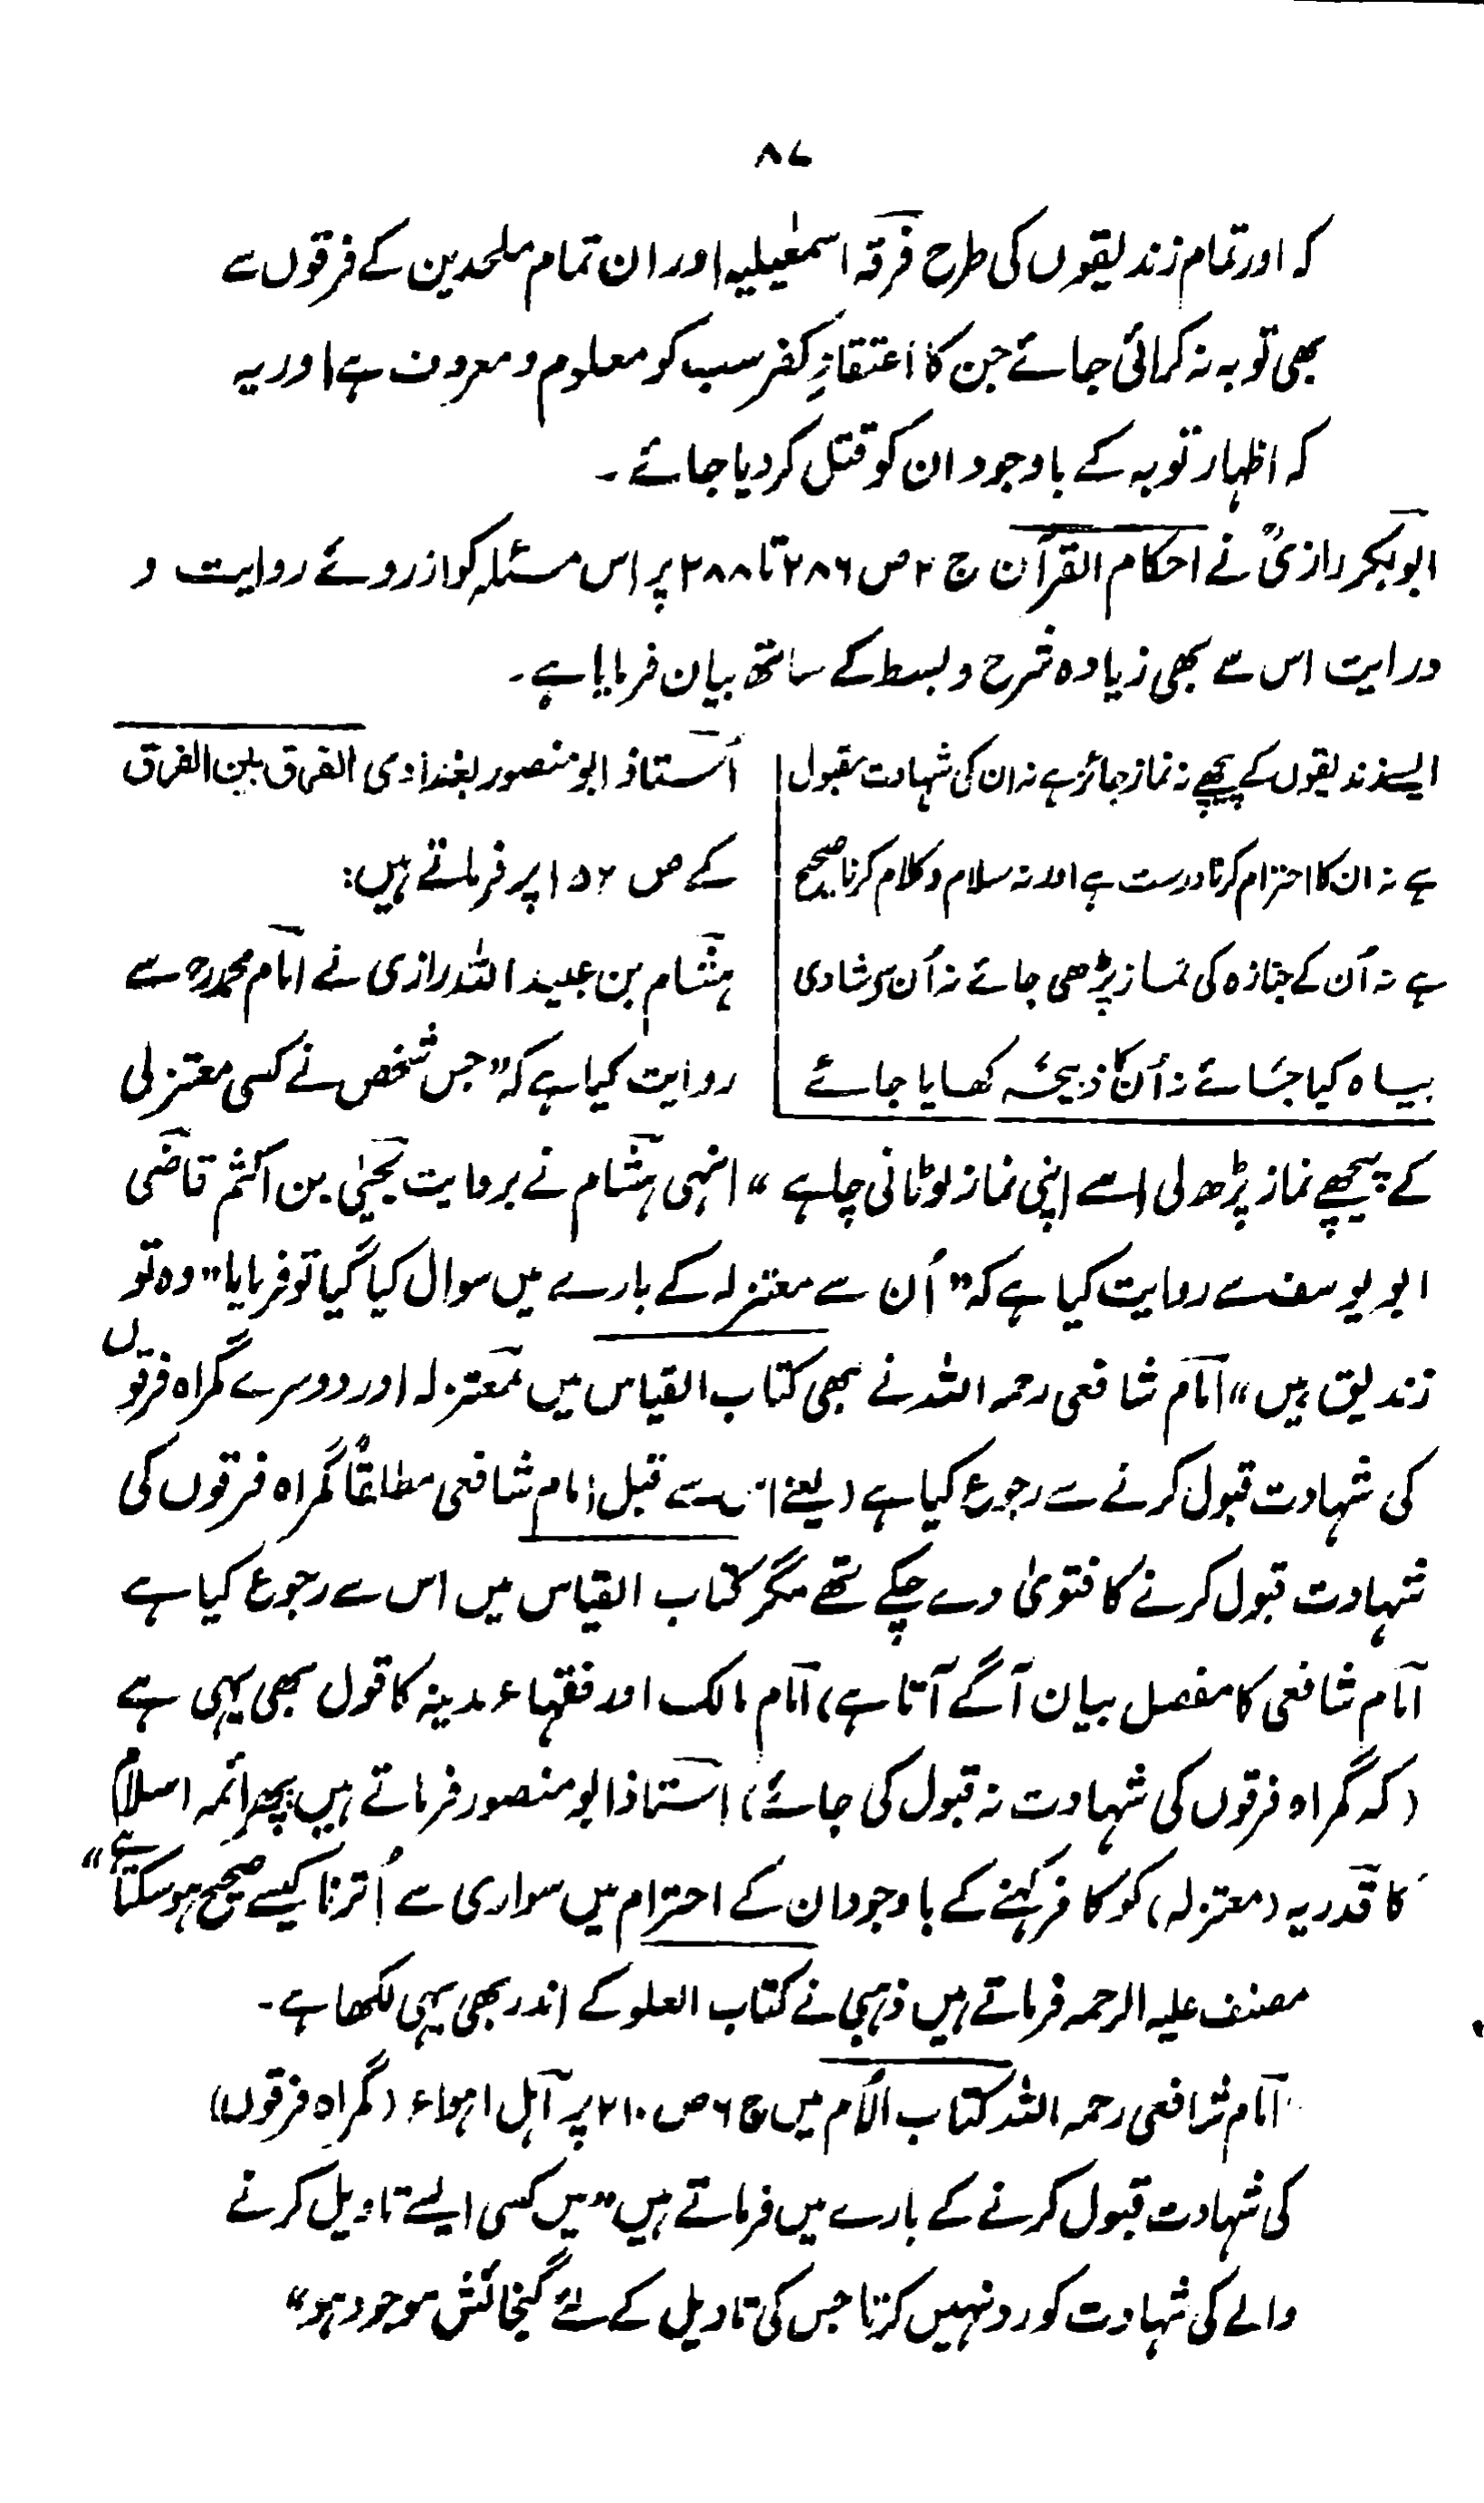 ۸۷
کہ اور تمام زندیقوں کی طرح فرقہ اسمٰعیلیہ اور ان تمام ملحدین کے فرقوں سے
بھی توبہ نہ کرائی جائے جن کا اعتقادِ کفر سب کو معلوم و معروف ہے اور یہ
کہ اظہار توبہ کے باوجود ان کو قتل کر دیا جائے۔
ابوبکر رازیؒ نے احکام القرآن ج ۲ ص ۲۸۶ تا ۲۸۸ پر اس مسئلہ کو از روئے روایت و
درایت اس سے بھی زیادہ شرح و بسط کے ساتھ بیان فرمایا ہے۔
ایسے زندیقوں کے پیچھے نہ نماز جائز ہے نہ ان کی شہادت مقبول
ہے نہ ان کا احترام کرنا درست ہے اور نہ سلام و کلام کرنا صحیح
ہے نہ اُن کے جنازہ کی نماز پڑھی جائے نہ اُن سے شادی
بیاہ کیا جائے نہ اُن کا ذبیحہ کھایا جائے
اُستاذ ابو منصور بغدادی الفرق بین الفرق
کے ص ۱۵۲ پر فرماتے ہیں:
ہشام بن عبید اللہ رازی نے امام محمدؒ سے
روایت کیا ہے کہ ”جس شخص نے کسی معتزلی
کے پیچھے نماز پڑھ لی اسے اپنی نماز لوٹانی چاہے“ انہی ہشام نے بروایت یحییٰ بن اکثم قاضی
ابو یوسف سے روایت کیا ہے کہ ”اُن سے معتزلہ کے بارے میں سوال کیا گیا تو فرمایا ”وہ تو
زندیق ہیں“ امام شافعی رحمہ اللہ نے بھی کتاب القیاس میں معتزلہ اور دوسرے گمراہ فرقوں
کی شہادت قبول کرنے سے رجوع کیا ہے (یعنے اس سے قبل امام شافعی مطلقاً گمراہ فرقوں کی
شہادت قبول کرنے کا فتویٰ دے چکے تھے مگر کتاب القیاس میں اس سے رجوع کیا ہے
امام شافعی کا مفصل بیان آگے آتا ہے) امام مالک اور فقہاء مدینہ کا قول بھی یہی ہے
(کہ گمراہ فرقوں کی شہادت نہ قبول کی جائے) استاذ ابو منصور فرماتے ہیں: پھر ائمہ اسلام
کا قدریہ (معتزلہ) کو کافر کہنے کے باوجود ان کے احترام میں سواری سے اُترنا کیسے صحیح ہو سکتا ہے“
مصنف علیہ الرحمہ فرماتے ہیں ذہبی نے کتاب العلو کے اندر بھی یہی لکھا ہے۔
امام شافعی رحمہ اللہ کتاب الام میں ج ۶ ص ۲۱۰ پر اہل اہواء (گمراہ فرقوں)
کی شہادت قبول کرنے کے بارے میں فرماتے ہیں ”میں کسی ایسے تاویل کرنے
والے کی شہادت کو رد نہیں کرتا جس کی تاویل کے لئے گنجائش موجود ہو“